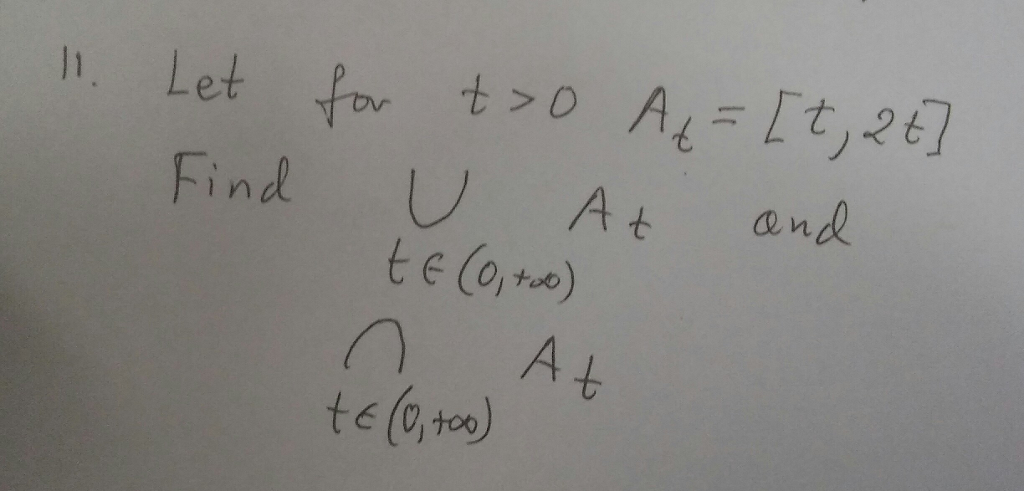 11. Let for t > 0 A_t = [t, 2t]
Find ∪ A_t and
t ∈ (0, +∞)
∩ A_t
t ∈ (0, +∞)